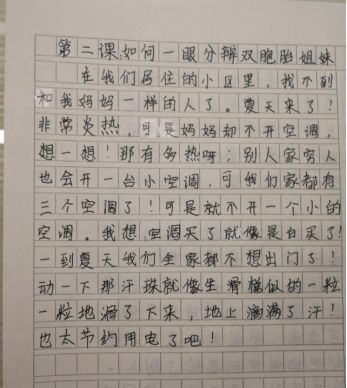 第二课:如何一眼分辨双胞胎姐妹
在我们居住的小区里，找不到
和我妈妈一样的人了。夏天来了！
非常炎热，可是妈妈却不开空调，
想一想！那有多热呀；别人家穷人
也会开一台小空调，可我们家都有
三个空调了！可是就不开一个小的
空调。我想空调买了就像是白买了！
一到夏天我们全家都不想出门了！
动一下那汗珠就像坐滑梯似的一粒
一粒地滑了下来，地上滴满了汗！
也太节约用电了吧！